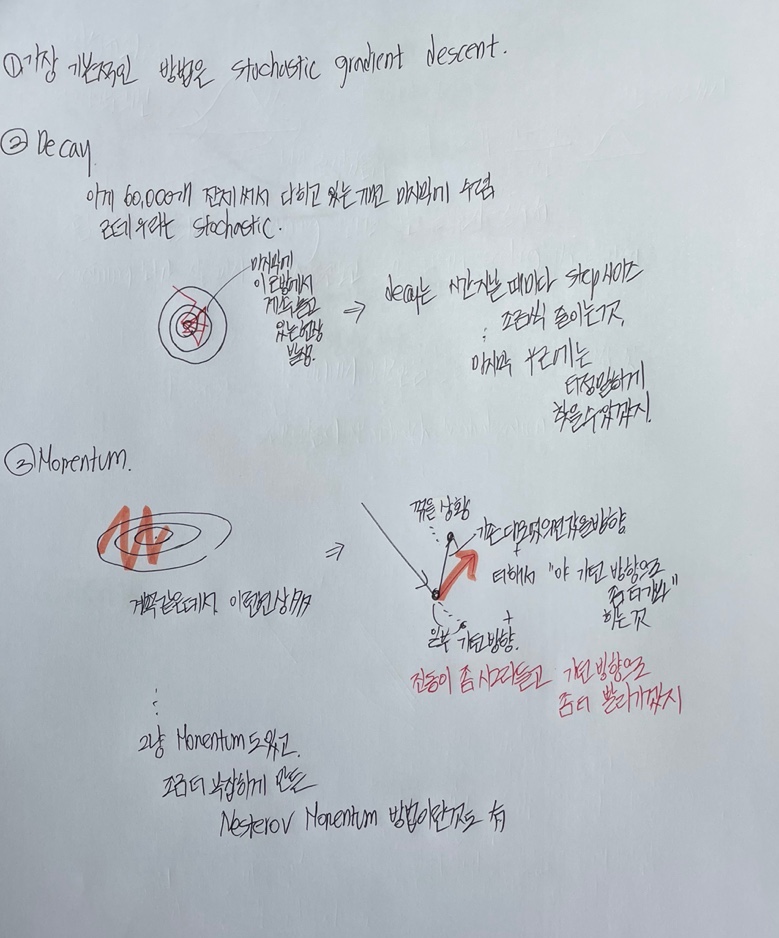 ① 가장 기본적인 방법은 stochastic gradient descent.
② Decay.
이게 60,000개 전체 써서 다하고 있는 게 마지막에 수렴
근데 우리는 stochastic.
마지막에
이 근방에서
계속 돌고
있는 현상
발생.
⇒ decay는 시간 지날 때마다 step 사이즈
조금씩 줄이는 것,
마지막 부근에는
더 정밀하게
찾을 수 있겠지.
③ Momentum.
계곡 같은 데서 이런 현상 多
⇒
꺾을 상황
기존 대로였으면 갔을 방향
+
더해서 "야 가던 방향으로
좀 더 가봐"
하는 것
일부 가던 방향.
+
진동이 좀 사그라들고 가던 방향으로
좀 더 빨리 가겠지
그냥 Momentum도 있고,
조금 더 복잡하게 만든
Nesterov Momentum 방법이란 것도 有